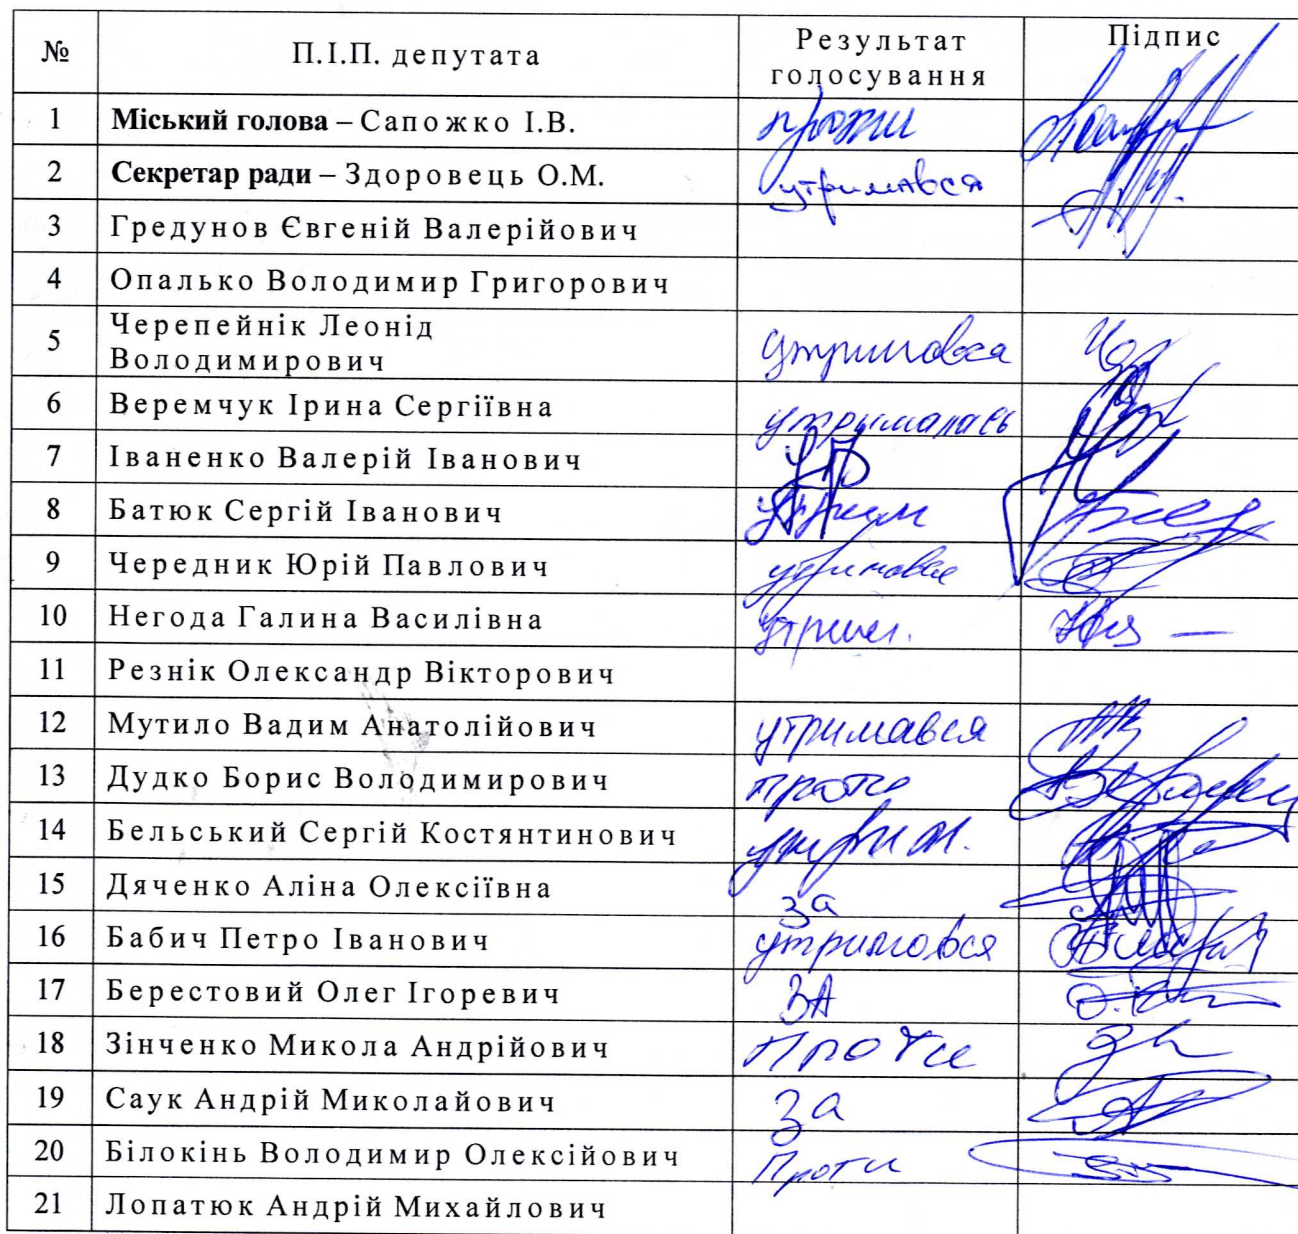 № П.І.П. депутата Результат голосування Підпис
1 Міський голова – Сапожко І.В. проти
2 Секретар ради – Здоровець О.М. утримався
3 Гредунов Євгеній Валерійович
4 Опалько Володимир Григорович
5 Черепейнік Леонід
Володимирович утримався
6 Веремчук Ірина Сергіївна утрималась
7 Іваненко Валерій Іванович
8 Батюк Сергій Іванович утрим
9 Чередник Юрій Павлович утримався
10 Негода Галина Василівна утрим.
11 Резнік Олександр Вікторович
12 Мутило Вадим Анатолійович утримався
13 Дудко Борис Володимирович проти
14 Бельський Сергій Костянтинович утрим.
15 Дяченко Аліна Олексіївна за
16 Бабич Петро Іванович утримався
17 Берестовий Олег Ігоревич ЗА
18 Зінченко Микола Андрійович Проти
19 Саук Андрій Миколайович За
20 Білокінь Володимир Олексійович Проти
21 Лопатюк Андрій Михайлович